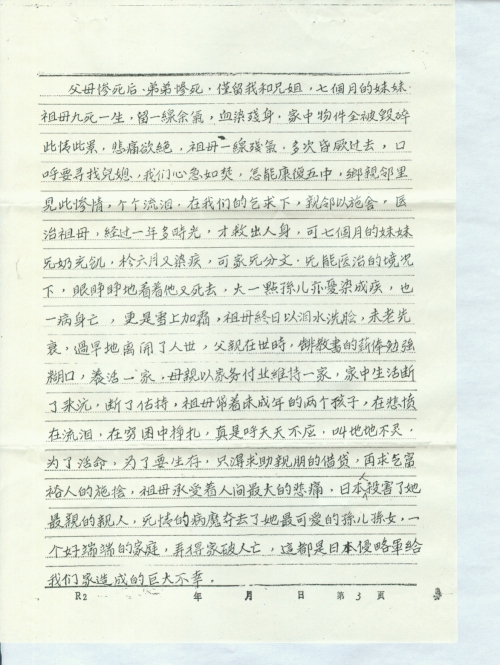 父母惨死后.弟弟惨死.僅留我和兄姐,七個月的妹妹.
祖母九死一生,留一線余氣,血染殘身.家中物件全被毀碎
此情此景.悲痛欲絕,祖母一線殘氣.多次昏厥过去,口
呼要寻找兒媳,我們心急如焚,怎能康復五中,鄉親邻里
見此慘情,个个流泪.在我们的乞求下,親邻以施舍,医
治祖母,经过一年多時光,才救出人身,可七個月的妹妹
无奶充飢,於六月又染疾,可家无分文.无能医治的境况
下,眼睁睁地看着他又死去,大一點孫儿亦受染成疾,也
一病身亡,更是雪上加霜,祖母終日以泪水洗脸,未老先
衰,過早地离開了人世,父親在世時,靠教書的薪俸勉强
糊口,养活一家.母親以家务付业維持一家,家中生活断
了来沅,断了估持,祖母帶着未成年的两个孩子,在悲愤
在流泪,在穷困中挣扎,真是呼天天不应.叫地地不灵.
为了活命,为了要生存,只得求助親朋的借贷,再求乞富
裕人的施捨,祖母承受着人间最大的悲痛.日本人殺害了她
最親的親人,无情的病魔夺去了她最可爱的孫儿孫女,一
个好端端的家庭,弄得家破人亡,這都是日本侵略軍給
我們家造成的巨大不幸.
R2 年 月 日 第 3 页